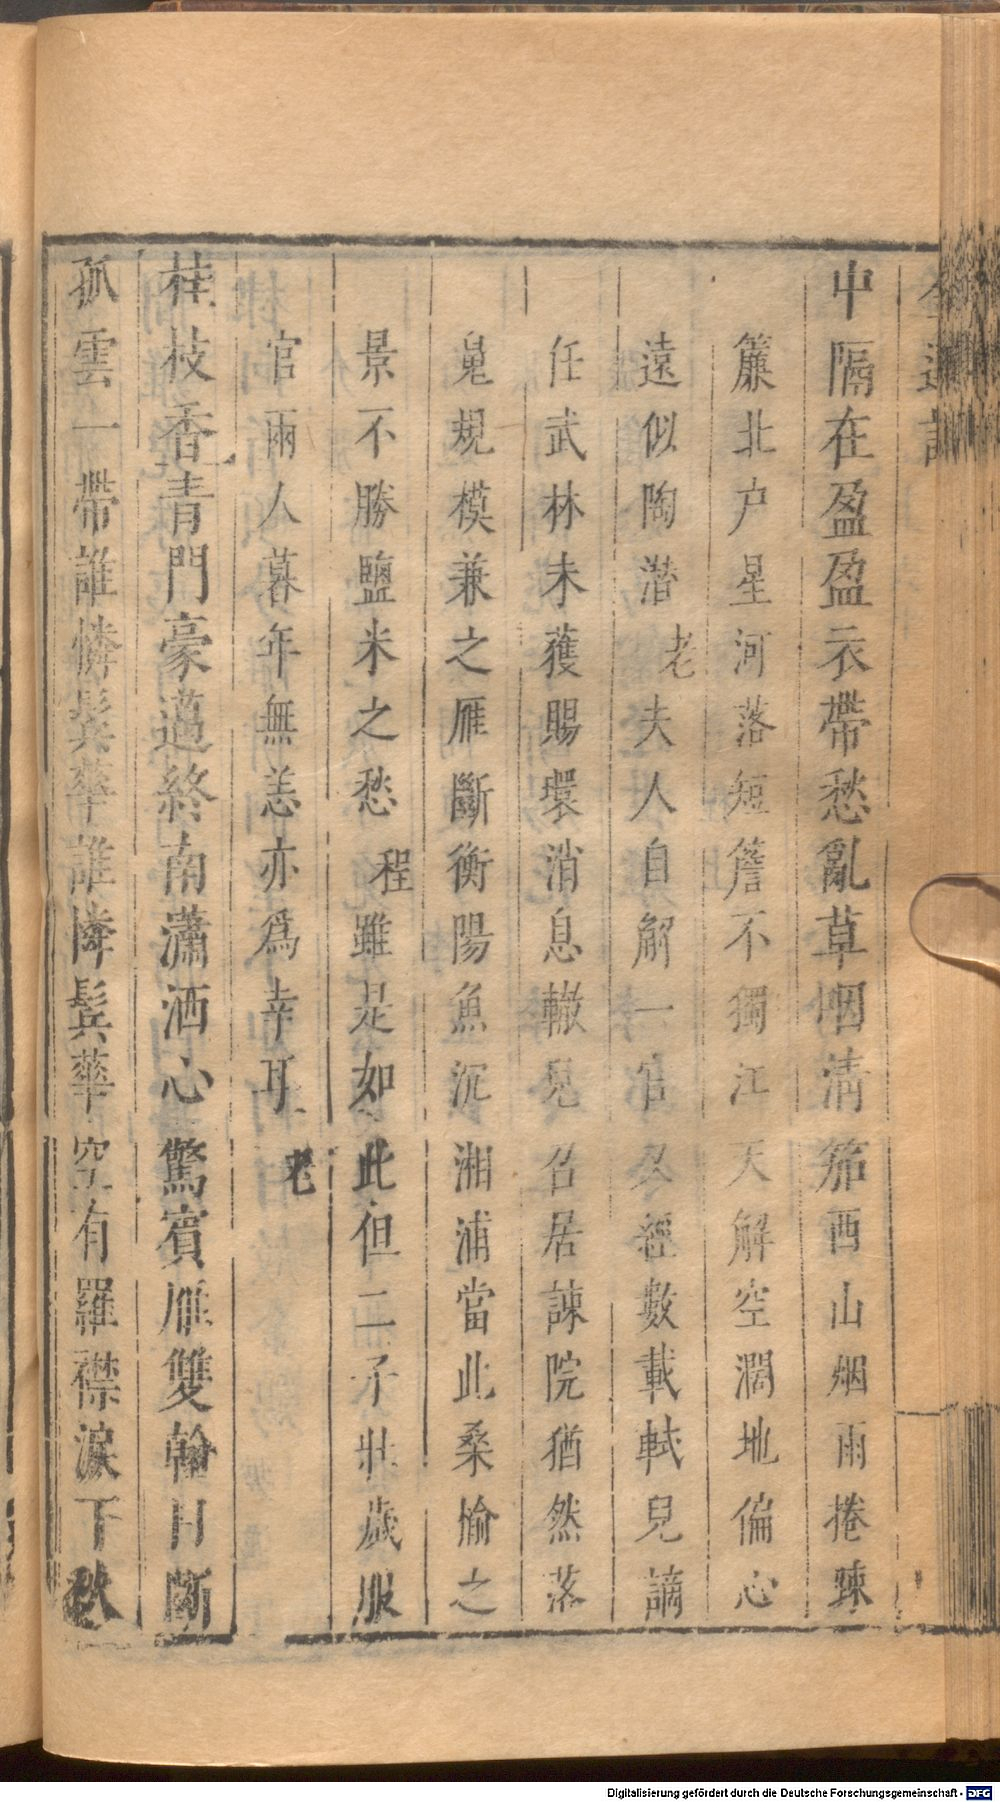 中隔在盈盈衣帶愁亂草咽清笳西山烟雨捲踈
簾北户星河落短簷不獨江天解空濶地偏心
遠似陶潛 老夫人自解一官久經數載軾兒謫
任武林未獲賜環消息轍兒召居諫院猶然落
魄規模兼之雁斷衡陽魚沉湘浦當此桑榆之
景不勝鹽米之愁 程雖是如此但二子壯歲服
官兩人暮年無恙亦爲幸耳 老
桂枝香青門豪邁終南瀟洒心驚賓雁雙翰目斷
孤雲一帶誰憐鬂華誰憐鬂華空有羅襟淚下秋
Digitalisierung gefördert durch die Deutsche Forschungsgemeinschaft - DFG